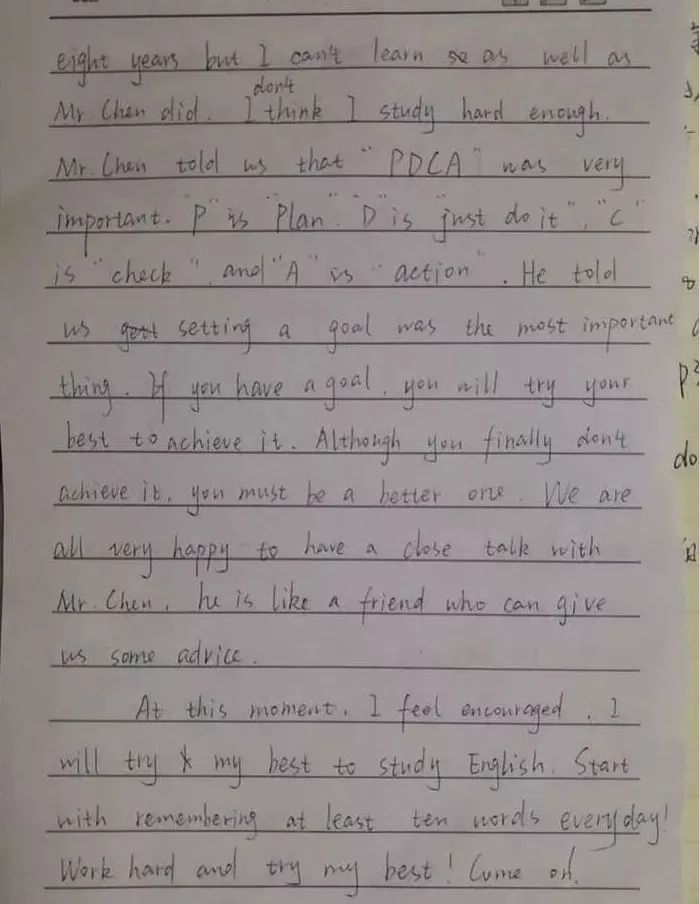 eight years but I can't learn so as well as
Mr. Chen did. I don't think I study hard enough.
Mr. Chen told us that "PDCA" was very
important. "P" is "Plan". "D" is "just do it", "C"
is "check", and "A" is "action". He told
us setting a goal was the most important
thing. If you have a goal, you will try your
best to achieve it. Although you finally don't
achieve it, you must be a better one. We are
all very happy to have a close talk with
Mr. Chen, he is like a friend who can give
us some advice.
At this moment, I feel encouraged. I
will try my best to study English. Start
with remembering at least ten words everyday!
Work hard and try my best! Come on!